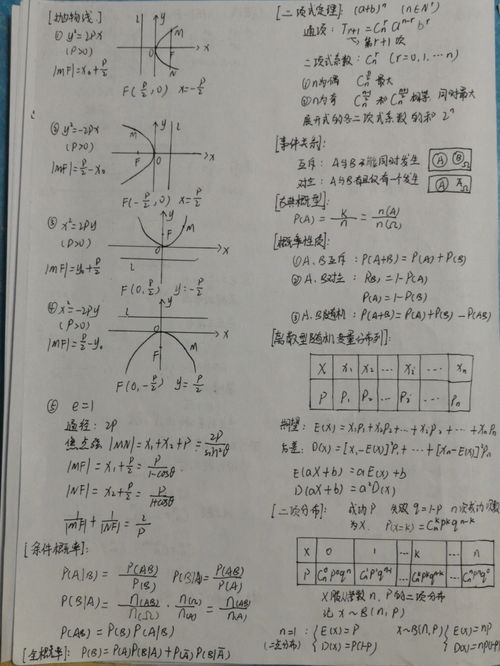 [抛物线]
① y²=2px
(P>0)
|MF|=x₀+p/2
F(p/2,0) x=-p/2
② y²=-2px
(P>0)
|MF|=p/2-x₀
F(-p/2,0) x=p/2
③ x²=2py
(P>0)
|MF|=y₀+p/2
F(0,p/2) y=-p/2
④ x²=-2py
(P>0)
|MF|=p/2-y₀
F(0,-p/2) y=p/2
⑤ e=1
通径: 2P
焦点弦 |MN|=x₁+x₂+P=2P/sin²θ
|MF|=x₁+p/2=P/1-cosθ
|NF|=x₂+p/2=P/1+cosθ
1/|MF|+1/|NF|=2/P
[条件概率]:
P(A|B)=P(AB)/P(B) P(B|A)=P(AB)/P(A)
P(B|A)=n(AB)/n(Ω)·n(Ω)/n(A)=n(AB)/n(A)
P(AB)=P(B)P(A|B)
[全概率]: P(B)=P(A)P(B|A)+P(Ā)P(B|Ā)
[二项式定理]: (a+b)ⁿ (n∈N*)
通项: Tr+1=Cₙʳaⁿ⁻ʳbʳ
第r+1项
二项式系数: Cₙʳ (r=0,1,…n)
①n为偶 最大
②n为奇 和 相等 同时最大
展开式的各二项式系数的和 2ⁿ
[事件关系]:
互斥: A与B不能同时发生
A B Ω
对立: A与B有且仅有一个发生
A Ω
[古典概型]:
P(A)=k/n=n(A)/n(Ω)
[概率性质]:
①A、B互斥: P(A+B)=P(A)+P(B)
②A、B对立: P(B)=1-P(A)
P(A)=1-P(B)
③A、B随机: P(A+B)=P(A)+P(B)-P(AB)
[离散型随机变量分布列]:
X x₁ x₂ … xᵢ … xₙ
P P₁ P₂ … Pᵢ … Pₙ
期望: E(X)=x₁P₁+x₂P₂+…+xᵢPᵢ+…+xₙPₙ
方差: D(X)=[x₁-E(X)]²P₁+…+[xₙ-E(X)]²Pₙ
E(aX+b)=aE(X)+b
D(aX+b)=a²D(X)
[二项分布]: 成功P 失败q=1-p n次成功次数
为X. P(X=k)=Cₙᵏpᵏqⁿ⁻ᵏ
X 0 1 … k … n
P Cₙ⁰p⁰qⁿ Cₙ¹p¹qⁿ⁻¹ … Cₙᵏpᵏqⁿ⁻ᵏ … Cₙⁿpⁿq⁰
X服从参数n,P的二项分布
记X~B(n,P)
n=1: E(X)=P X~B(n,P) E(X)=nP
(二点分布) D(X)=P(1-P) D(X)=nP(1-P)